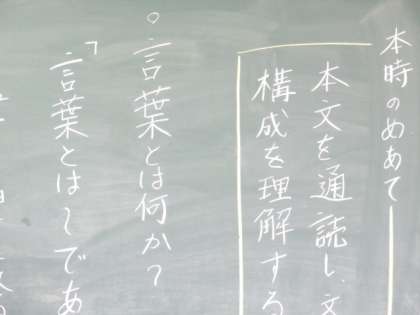 本時のめあて
本文を通読し、文
構成を理解する
○言葉とは何か?
「言葉とは〜であ